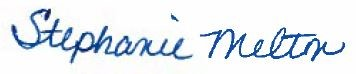 Stephanie Melton